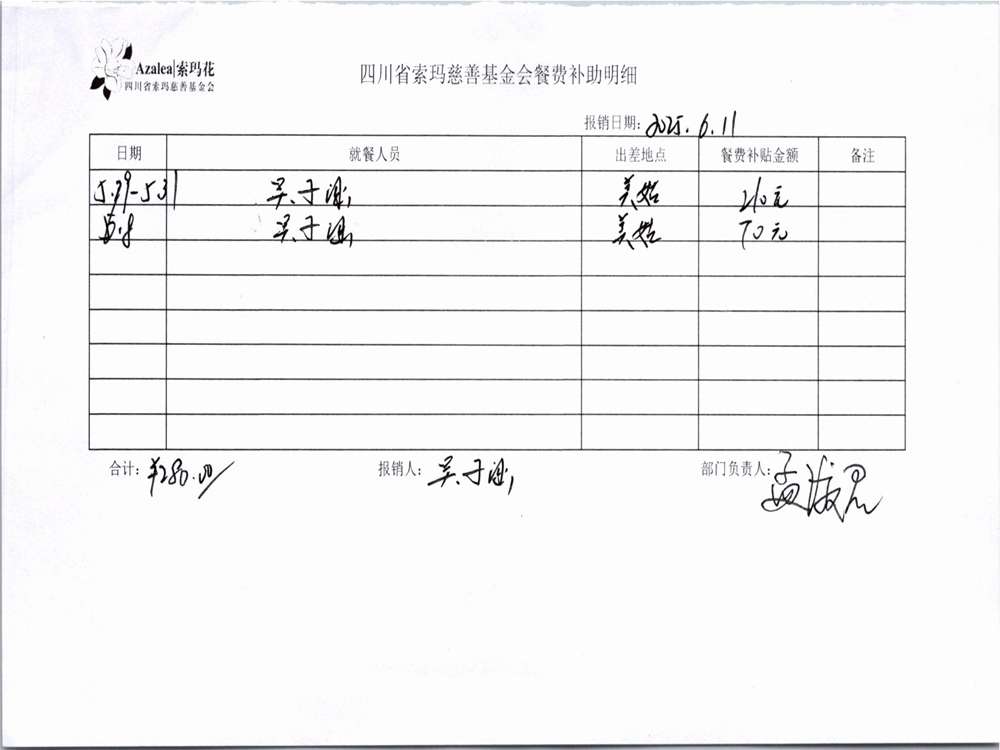 Azalea|索玛花
四川省索玛慈善基金会
四川省索玛慈善基金会餐费补助明细
报销日期: 2025.6.11
日期 就餐人员 出差地点 餐费补贴金额 备注
5.29-5.31 吴子 美姑 210元
5.8 吴子 美姑 70元
合计: ¥280.00 报销人: 吴子 部门负责人: 孟